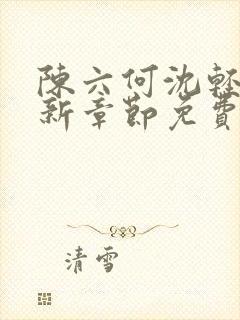 陳六何沈輕
新章節免費
清雪